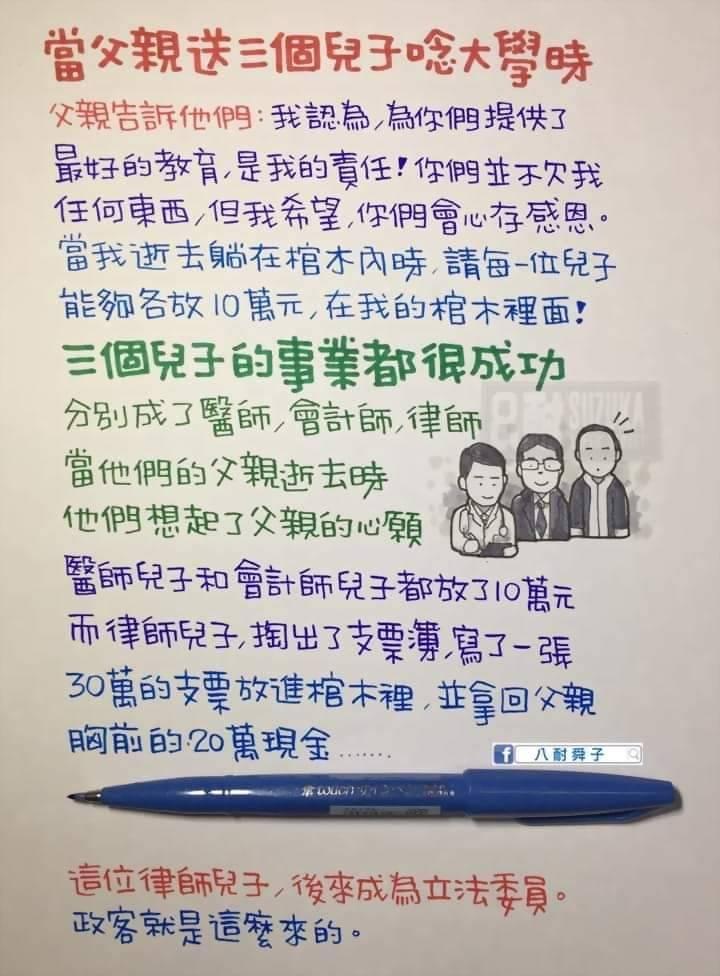 當父親送三個兒子唸大學時
父親告訴他們：我認為，為你們提供了
最好的教育，是我的責任！你們並不欠我
任何東西，但我希望，你們會心存感恩。
當我逝去躺在棺木內時，請每一位兒子
能夠各放10萬元，在我的棺木裡面！
三個兒子的事業都很成功
分別成了醫師，會計師，律師
SUZUKA
當他們的父親逝去時
他們想起了父親的心願
醫師兒子和會計師兒子都放了10萬元
而律師兒子，掏出了支票簿，寫了一張
30萬的支票放進棺木裡，並拿回父親
胸前的20萬現金……
f 八耐舜子
touch
這位律師兒子，後來成為立法委員。
政客就是這麼來的。